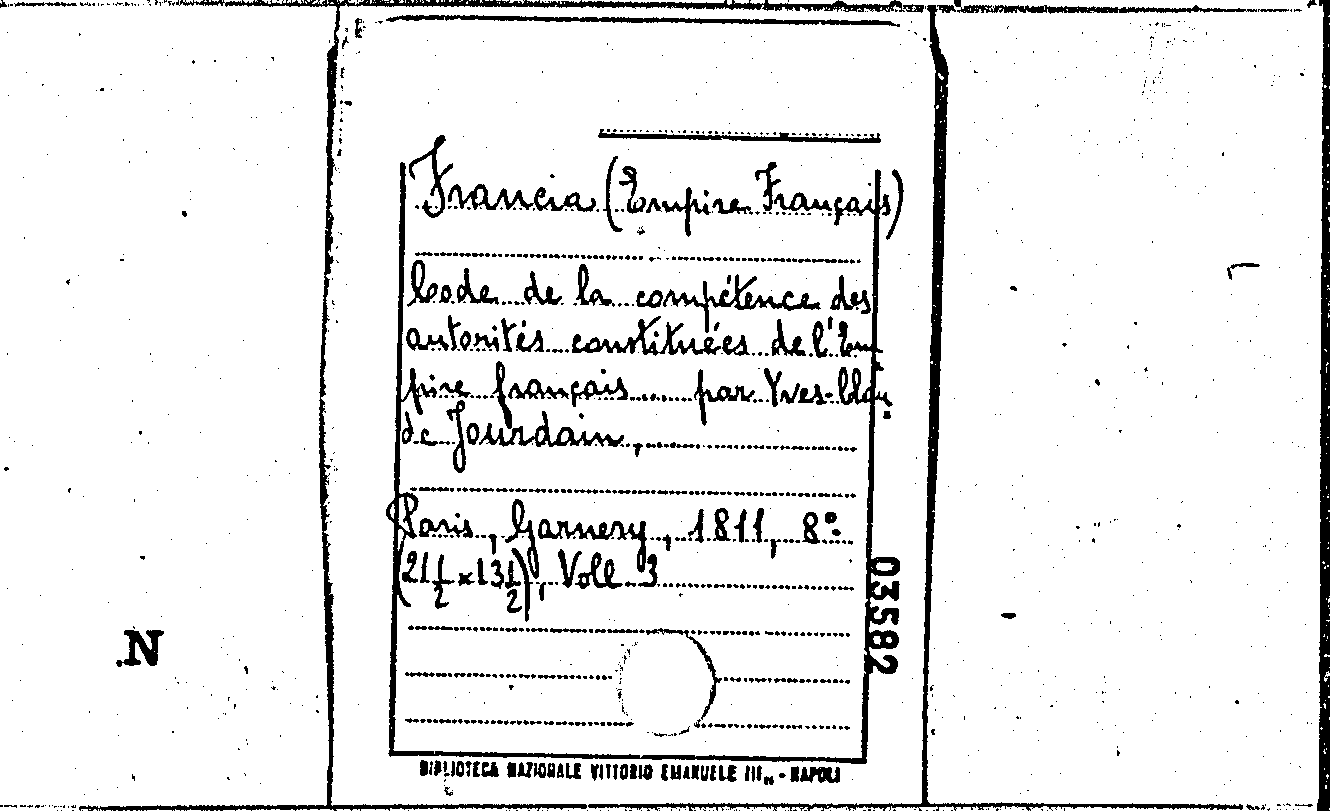 Francia (Empire Français)
Code de la compétence des
autorités constituées de l'Em-
pire français.... par Yves-Clau-
de Jourdain,
Paris, Garnery, 1811, 8°.
(21 1/2 x 13 1/2), Voll 3
03582
.N
BIBLIOTECA NAZIONALE VITTORIO EMANUELE III„ - NAPOLI